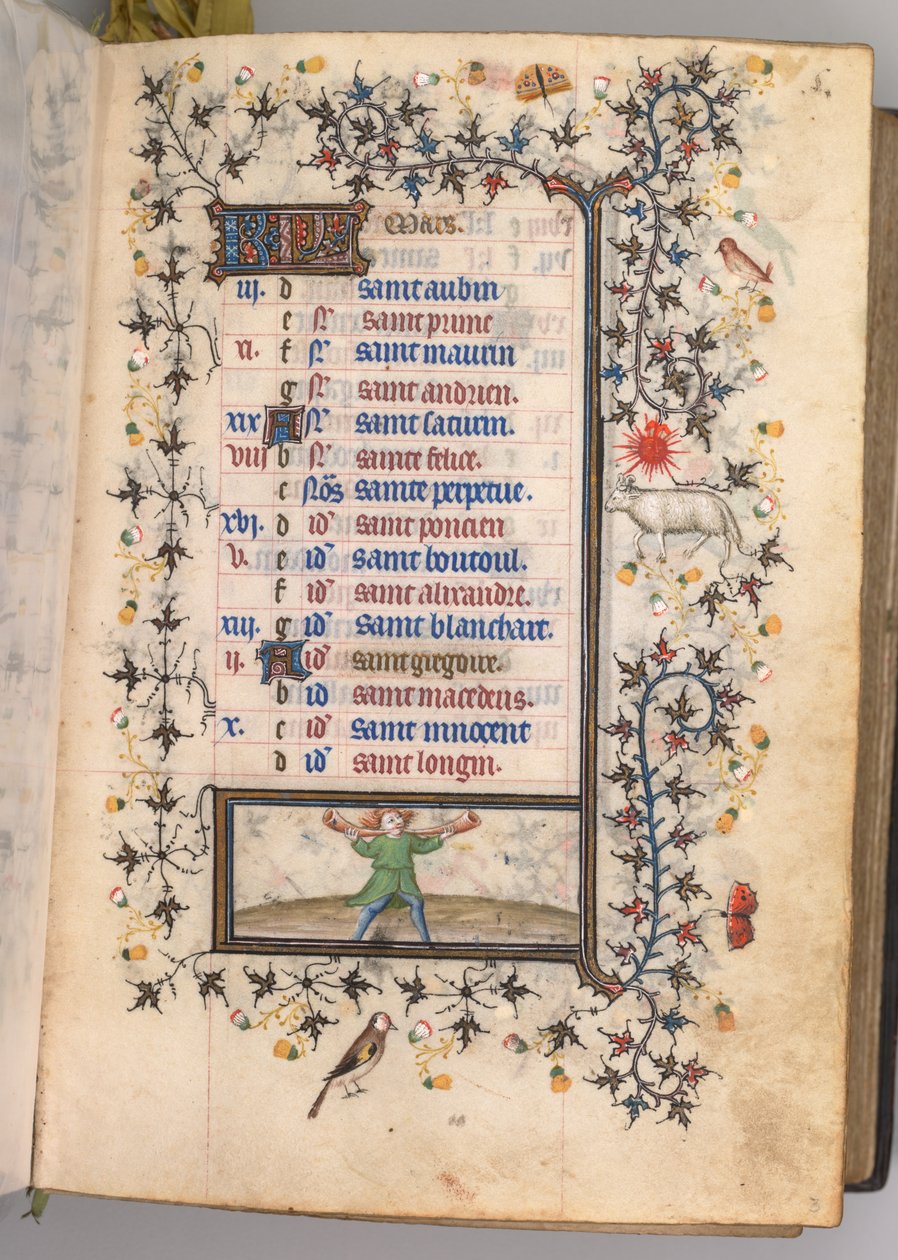 KL Mars.
iij. d saint aubin
e N saint prime
xi. f N saint maurin
g N saint andrien.
xix A N saint saturin.
viij b N sainte felice.
c Noñs sainte perpetue.
xvi. d id saint poncien
v. e id saint boutoul.
f id saint alixandre.
xiij. g id saint blanchart.
ij. A id saint gregoire.
b id saint macedeus.
x. c id saint innocent
d id saint longin.
3